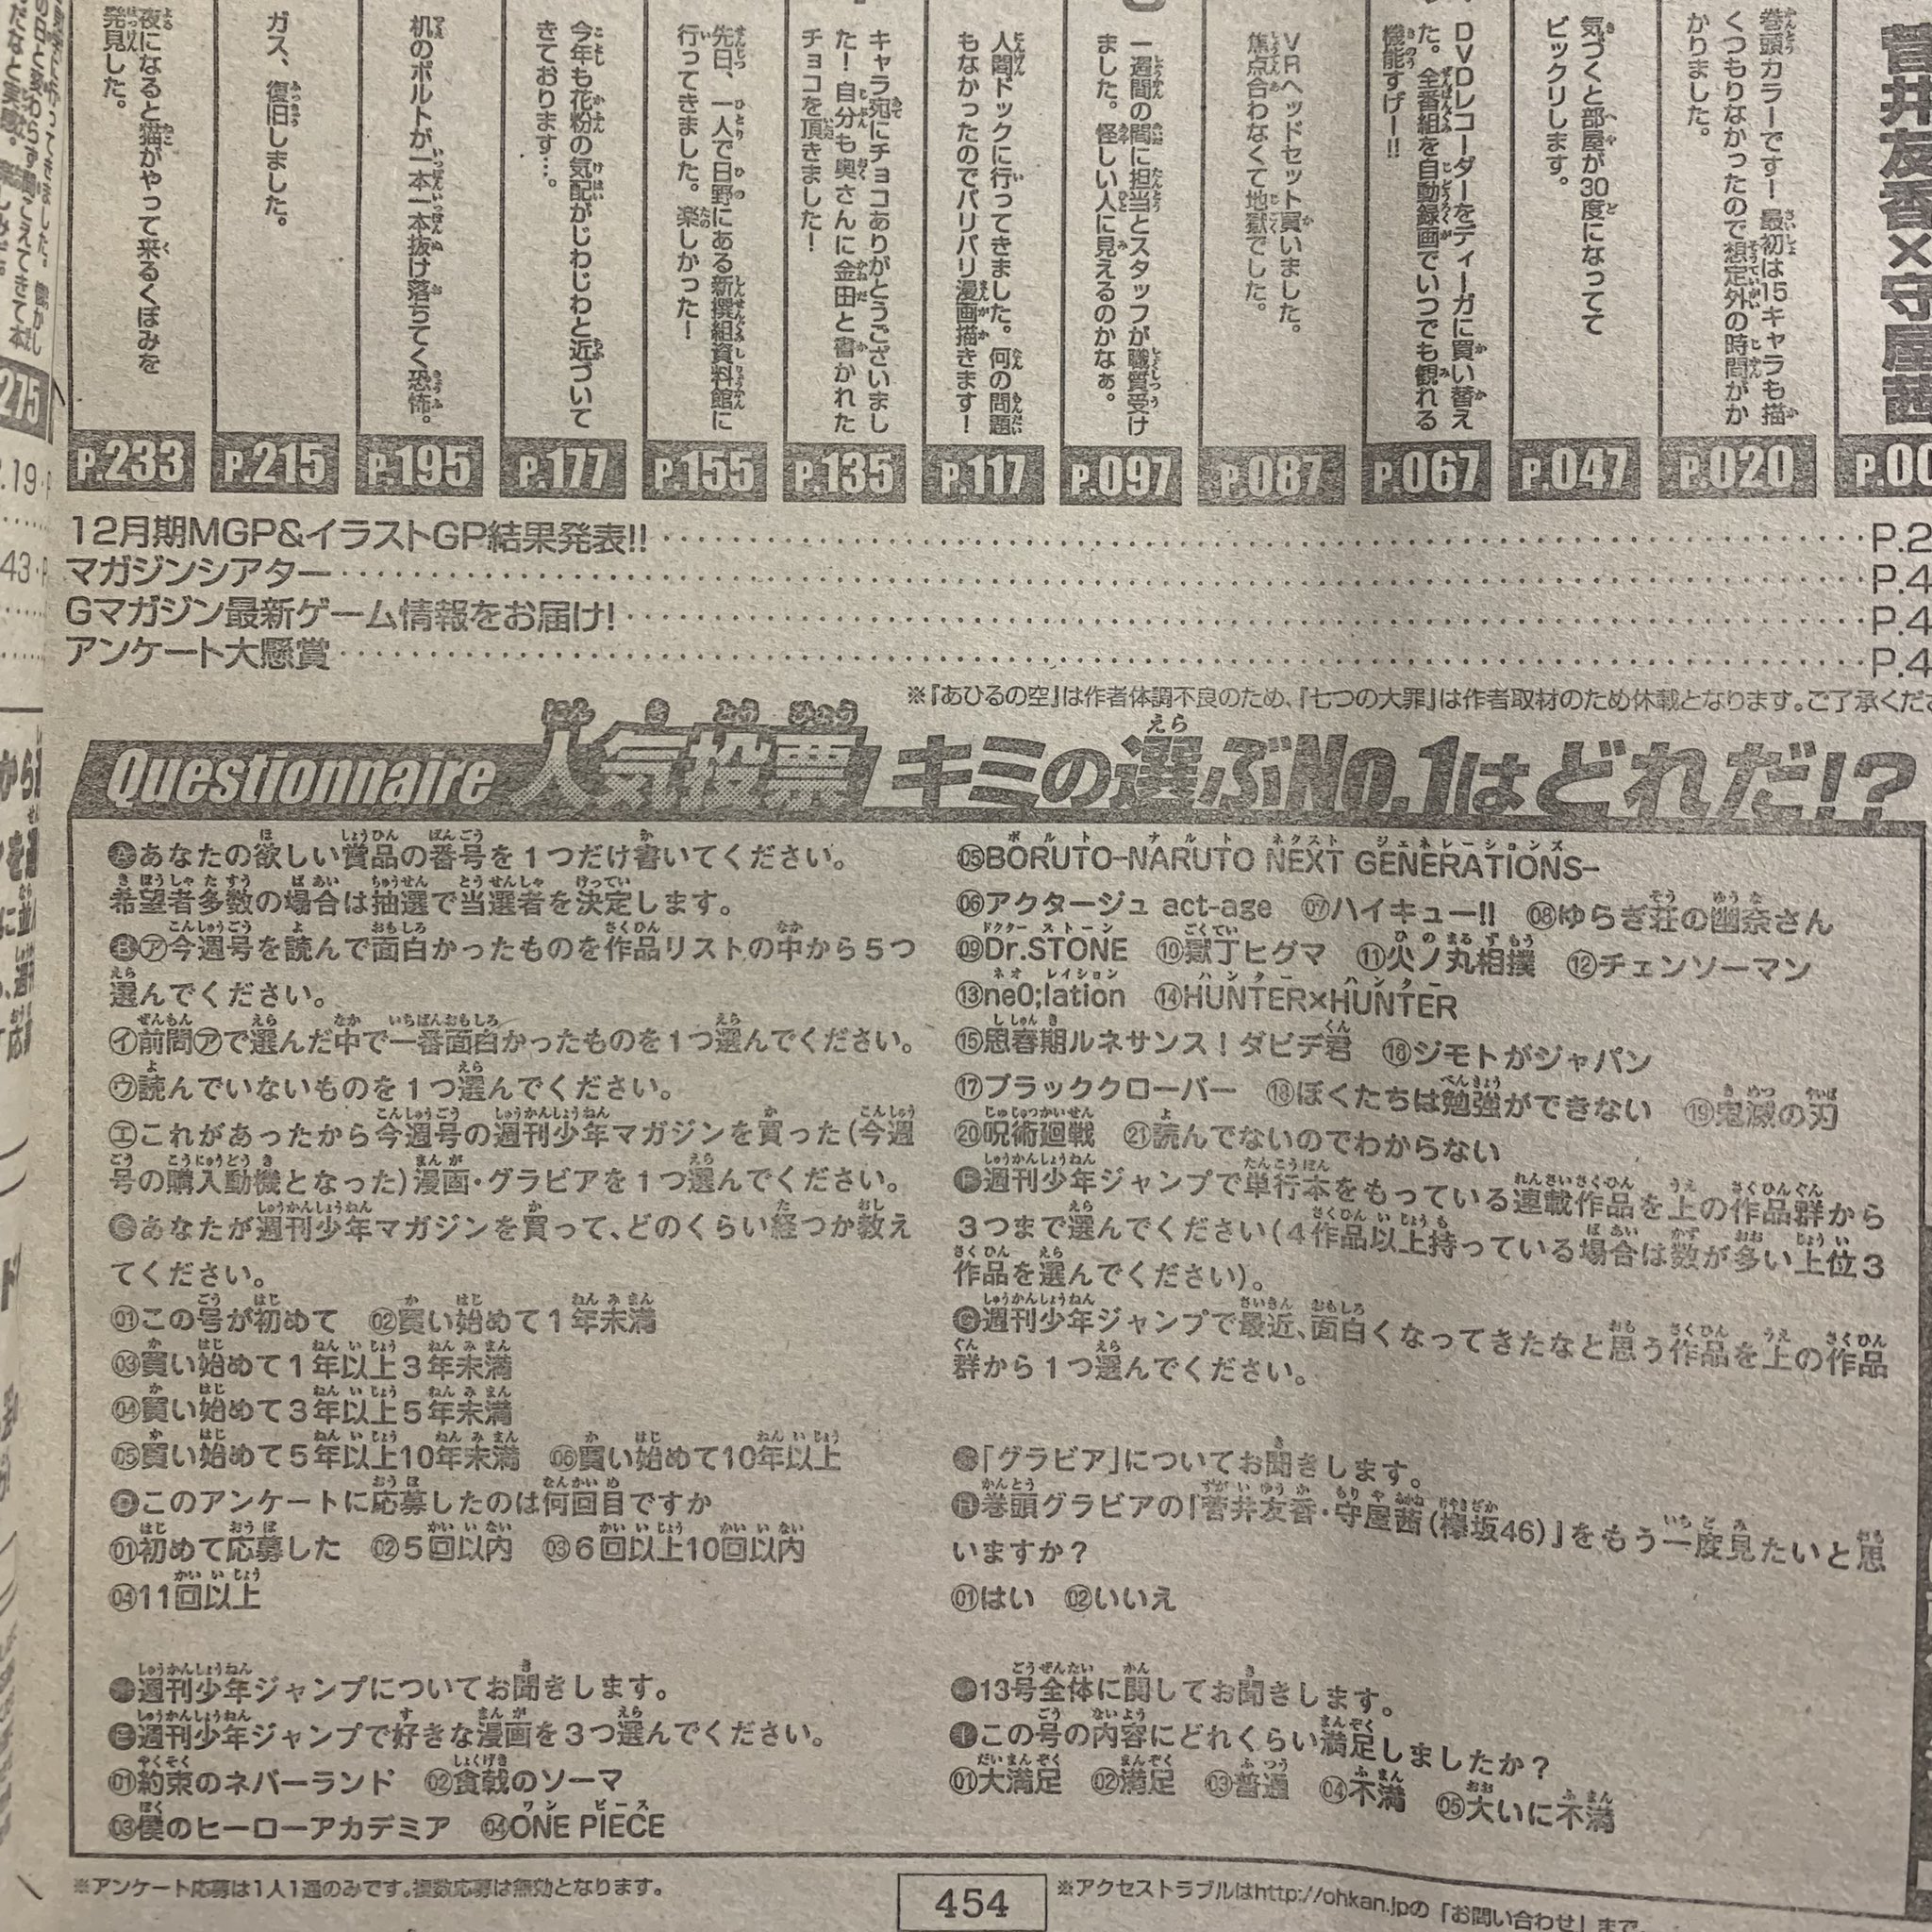 菅井友香×守屋茜
巻頭カラーです！最初は15キャラも描
くつもりなかったので想定外の時間がか
かりました。
P.020
気づくと部屋が30度になってて
ビックリします。
P.047
DVDレコーダーをディーガに買い替え
た。全番組を自動録画でいつでも観れる
機能すげー!!
P.067
VRヘッドセット買いました。
焦点合わなくて地獄でした。
P.087
一週間の間に担当とスタッフが職質受け
ました。怪しい人に見えるのかなぁ。
P.097
人間ドックに行ってきました。何の問題
もなかったのでバリバリ漫画描きます！
P.117
キャラ宛にチョコありがとうございまし
た！自分も奥さんに金田と書かれた
チョコを頂きました！
P.135
先日、一人で日野にある新撰組資料館に
行ってきました。楽しかった！
P.155
今年も花粉の気配がじわじわと近づいて
きております…。
P.177
机のボルトが一本一本抜け落ちてく恐怖。
P.195
ガス、復旧しました。
P.215
夜になると猫がやって来るくぼみを
発見した。
P.233
275
12月期MGP&イラストGP結果発表!!
マガジンシアター
Gマガジン最新ゲーム情報をお届け!
アンケート大懸賞
※『あひるの空』は作者体調不良のため、『七つの大罪』は作者取材のため休載となります。ご了承くだ
Questionnaire 人気投票 キミの選ぶNo.1はどれだ!?
Ⓐあなたの欲しい賞品の番号を１つだけ書いてください。
希望者多数の場合は抽選で当選者を決定します。
Ⓑ㋐今週号を読んで面白かったものを作品リストの中から５つ
選んでください。
㋑前問㋐で選んだ中で一番面白かったものを１つ選んでください。
㋒読んでいないものを１つ選んでください。
㋓これがあったから今週号の週刊少年マガジンを買った（今週
号の購入動機となった）漫画・グラビアを１つ選んでください。
Ⓒあなたが週刊少年マガジンを買って、どのくらい経つか教え
てください。
01この号が初めて 02買い始めて１年未満
03買い始めて１年以上３年未満
04買い始めて３年以上５年未満
05買い始めて５年以上10年未満 06買い始めて10年以上
Ⓓこのアンケートに応募したのは何回目ですか
01初めて応募した 02５回以内 03６回以上10回以内
04 11回以上
●週刊少年ジャンプについてお聞きします。
Ⓔ週刊少年ジャンプで好きな漫画を３つ選んでください。
01約束のネバーランド 02食戟のソーマ
03僕のヒーローアカデミア 04ONE PIECE
05BORUTO-NARUTO NEXT GENERATIONS-
06アクタージュ act-age 07ハイキュー!! 08ゆらぎ荘の幽奈さん
09Dr.STONE ⑩獄丁ヒグマ ⑪火ノ丸相撲 ⑫チェンソーマン
⑬ne0;lation ⑭HUNTER×HUNTER
⑮思春期ルネサンス！ダビデ君 ⑯ジモトがジャパン
⑰ブラッククローバー ⑱ぼくたちは勉強ができない ⑲鬼滅の刃
⑳呪術廻戦 ㉑読んでないのでわからない
Ⓕ週刊少年ジャンプで単行本をもっている連載作品を上の作品群から
３つまで選んでください（４作品以上持っている場合は数が多い上位３
作品を選んでください）。
Ⓖ週刊少年ジャンプで最近、面白くなってきたなと思う作品を上の作品
群から１つ選んでください。
●「グラビア」についてお聞きします。
Ⓗ巻頭グラビアの『菅井友香・守屋茜（欅坂46）』をもう一度見たいと思
いますか？
01はい 02いいえ
●13号全体に関してお聞きします。
Ⓘこの号の内容にどれくらい満足しましたか？
01大満足 02満足 03普通 04不満 05大いに不満
※アンケート応募は1人1通のみです。複数応募は無効となります。
454
※アクセストラブルはhttp://ohkan.jpの「お問い合わせ」まで。